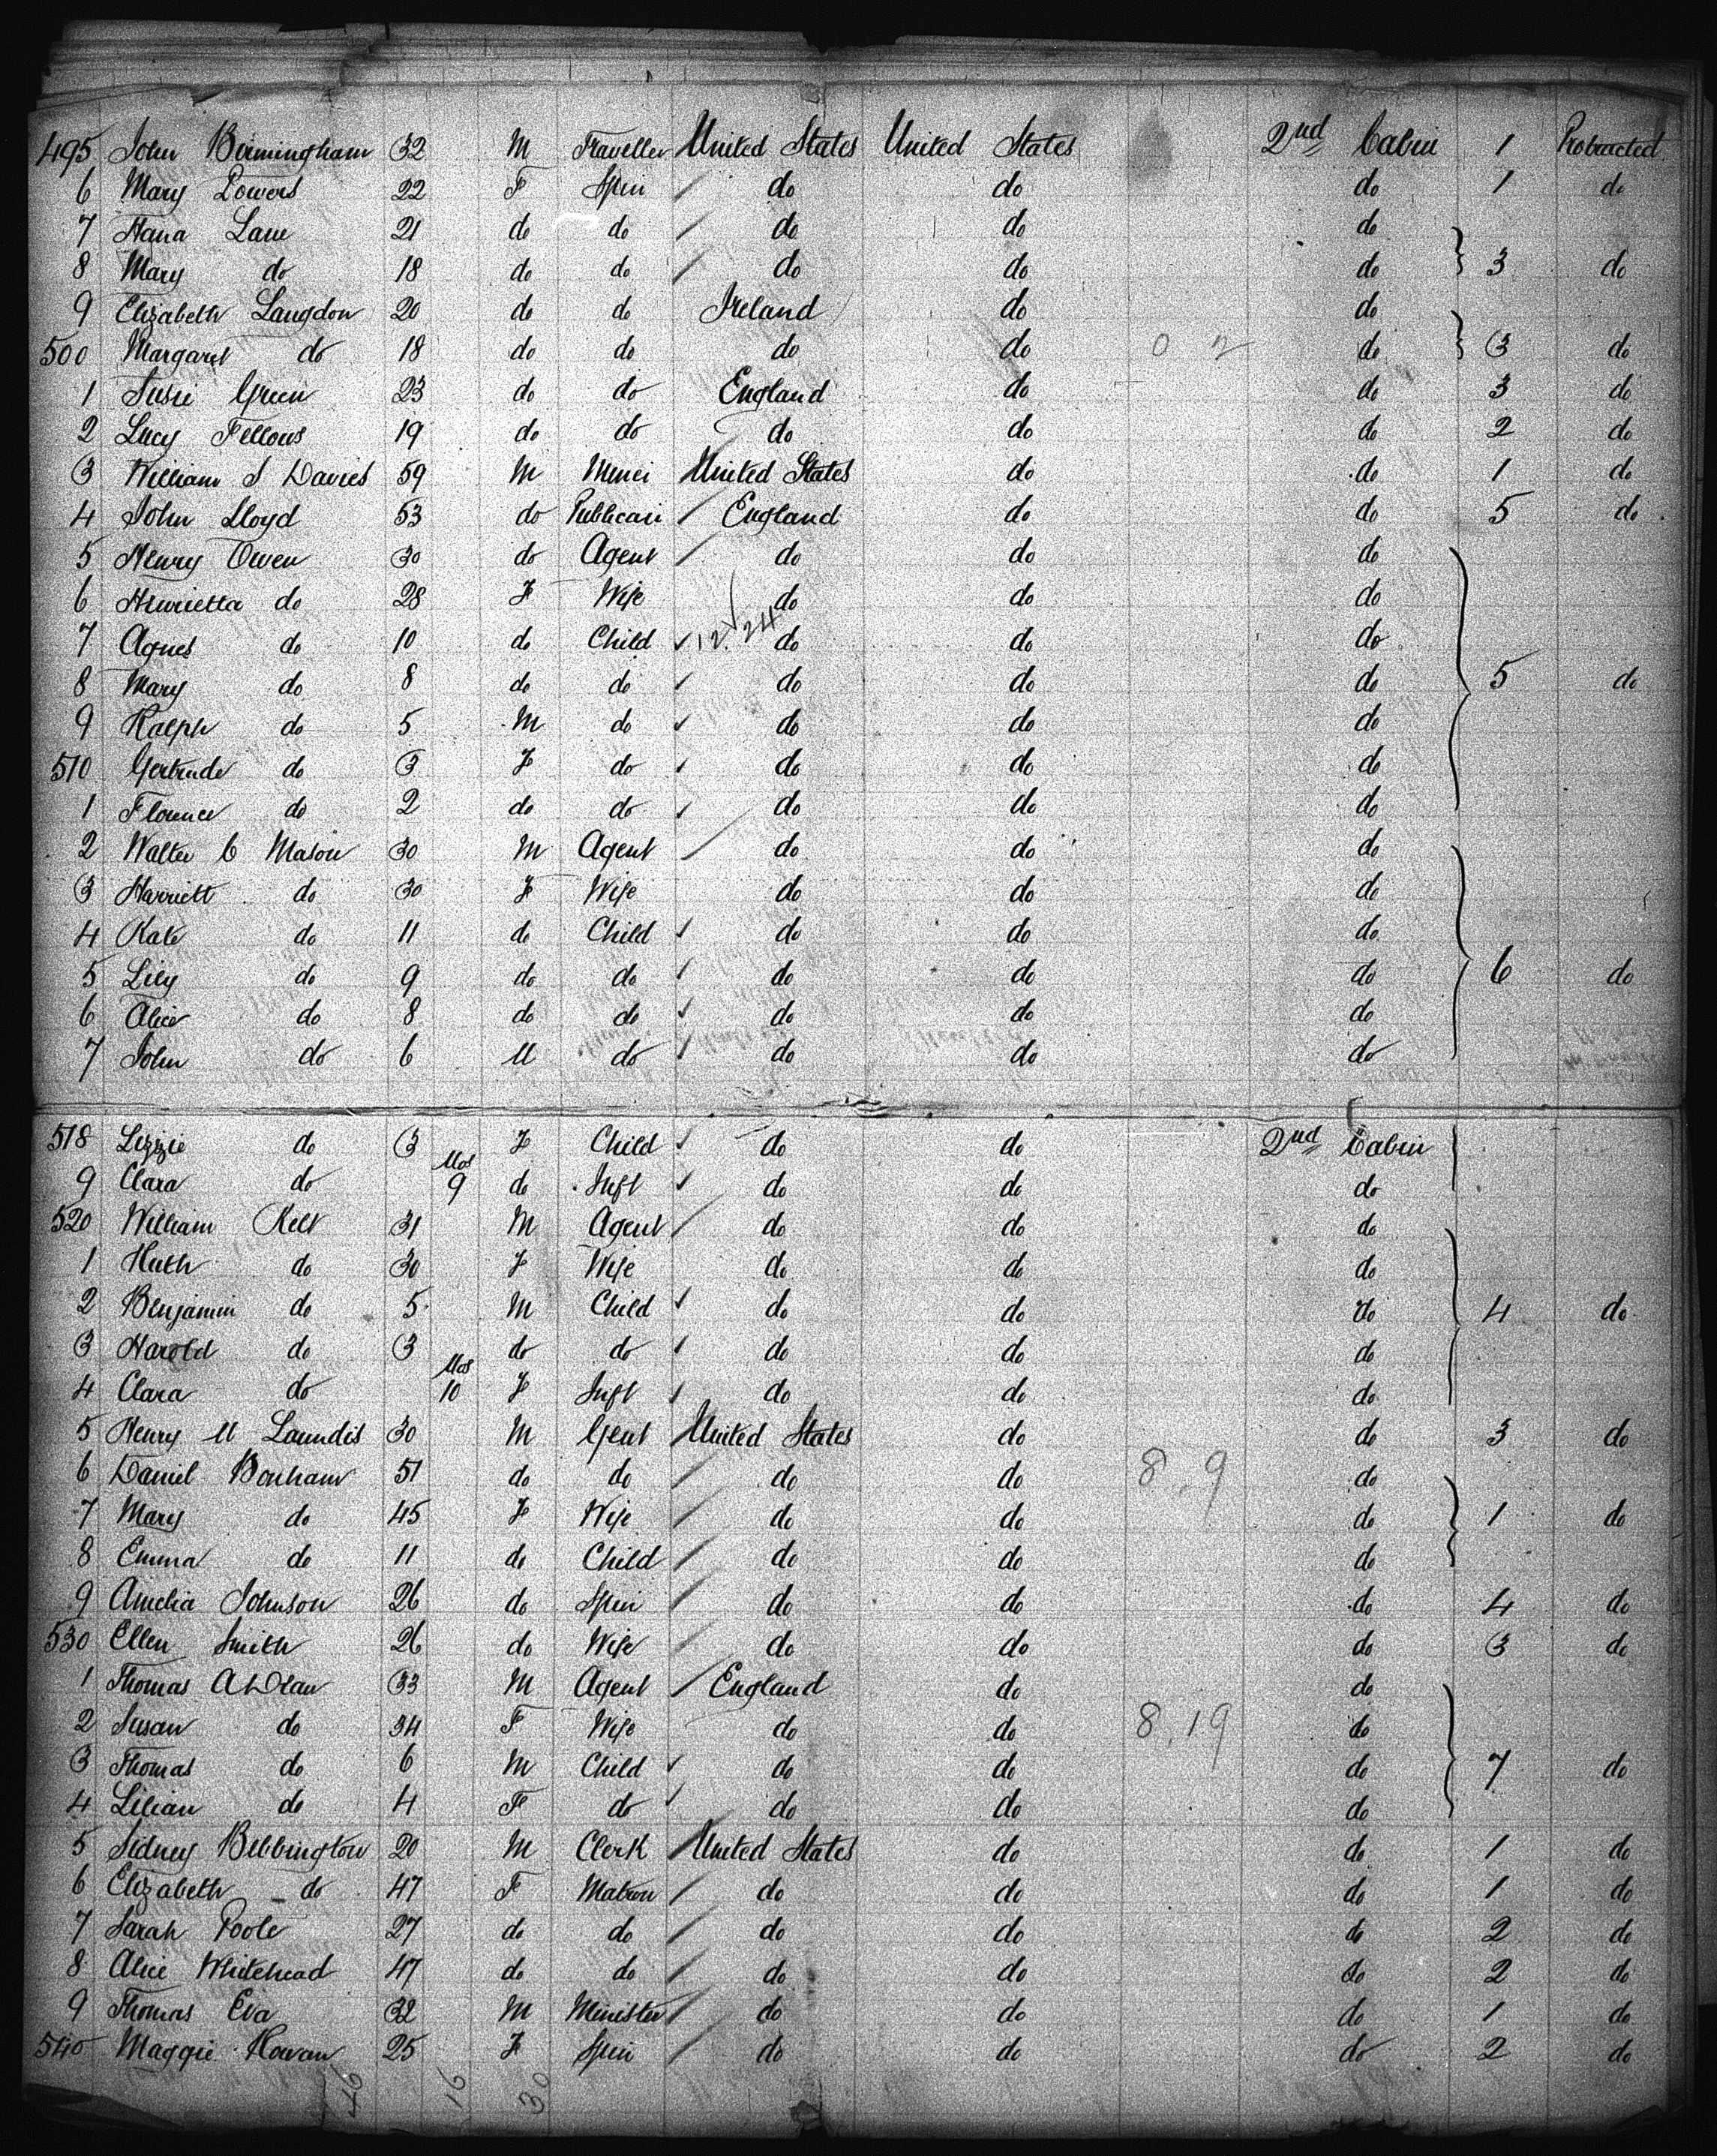 495 John Birmingham 32 M Traveller United States United States 2nd Cabin 1 Protracted
6 Mary Powers 22 F Spin do do do 1 do
7 Hana Lane 21 do do do do do
8 Mary do 18 do do do do do 3 do
9 Elizabeth Langdon 20 do do Ireland do do
500 Margaret do 18 do do do do 0 2 do 3 do
1 Susie Green 23 do do England do do 3 do
2 Lucy Fellows 19 do do do do do 2 do
3 William S Davies 59 M United States do do 1 do
4 John Lloyd 53 do Publican England do do 5 do
5 Henry Owen 30 do Agent do do do
6 Henrietta do 28 F Wife do do do
7 Agnes do 10 do Child 12 24 do do do
8 Mary do 8 do do do do do 5 do
9 Ralph do 5 M do do do do
510 Gertrude do 3 F do do do do
1 Florence do 2 do do do do do
2 Walter C Mason 30 M Agent do do do
3 Harriett do 30 F Wife do do do
4 Kate do 11 do Child do do do
5 Lily do 9 do do do do do 6 do
6 Alice do 8 do do do do do
7 John do 6 M do do do do
518 Lizzie do 3 F Child do do 2nd Cabin
9 Clara do Mos 9 do Inft do do do
520 William Kelt 31 M Agent do do do
1 do 30 F Wife do do do
2 Benjamin do 5 M Child do do do 4 do
3 Harold do 3 do do do do do
4 Clara do Mos 10 F Inft do do do
5 Henry M Laundis 30 M Gent United States do do 3 do
6 Daniel Bonham 51 do do do do 8.9 do
7 Mary do 45 F Wife do do do 1 do
8 Emma do 11 do Child do do do
9 Amelia Johnson 26 do Spin do do do 4 do
530 Ellen Smith 26 do Wife do do do 3 do
1 Thomas 33 M Agent England do do
2 Susan do 34 F Wife do do 8.19 do
3 Thomas do 6 M Child do do do 7 do
4 Lilian do 4 F do do do do
5 Sidney Bebbington 20 M Clerk United States do do 1 do
6 Elizabeth do 47 F Matron do do do 1 do
7 Sarah Poole 27 do do do do do 2 do
8 Alice Whitehead 47 do do do do do 2 do
9 Thomas Eva 32 M Minister do do do 1 do
540 Maggie Rowan 25 F Spin do do do 2 do
46 16 30